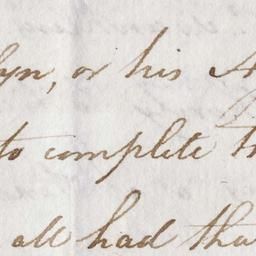 lyn, or his A
to complete th
all had tha